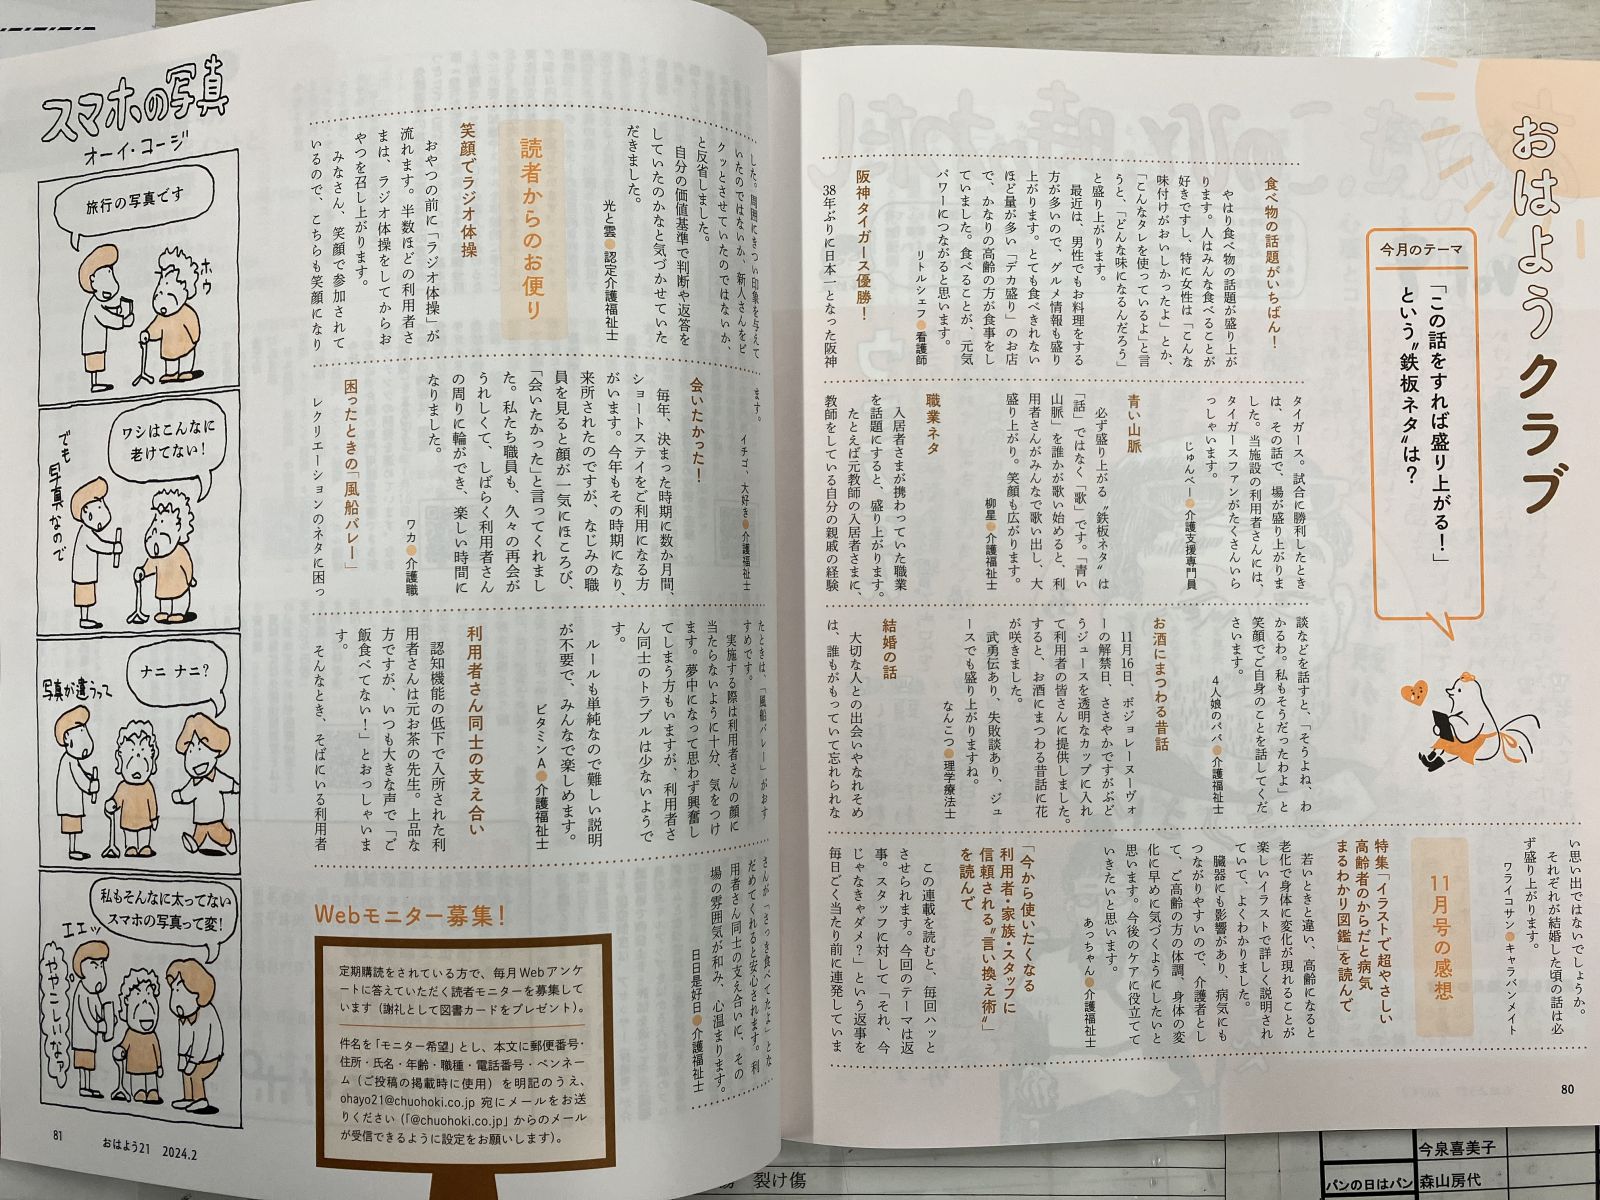 おはようクラブ
今月のテーマ
「この話をすれば盛り上がる！」
という〝鉄板ネタ〟は？
食べ物の話題がいちばん！
やはり食べ物の話題が盛り上が
ります。人はみんな食べることが
好きですし、特に女性は「こんな
味付けがおいしかったよ」とか、
「こんなタレを使っているよ」と言
うと、「どんな味になるんだろう」
と盛り上がります。
最近は、男性でもお料理をする
方が多いので、グルメ情報も盛り
上がります。とても食べきれない
ほど量が多い「デカ盛り」のお店
で、かなりの高齢の方が食事をし
ていました。食べることが、元気
パワーにつながると思います。
リトルシェフ●看護師
阪神タイガース優勝！
38年ぶりに日本一となった阪神
タイガース。試合に勝利したとき
は、その話で、場が盛り上がりま
した。当施設の利用者さんには、
タイガースファンがたくさんいら
っしゃいます。
じゅんべー●介護支援専門員
青い山脈
必ず盛り上がる〝鉄板ネタ〟は
「話」ではなく「歌」です。「青い
山脈」を誰かが歌い始めると、利
用者さんがみんなで歌い出し、大
盛り上がり。笑顔も広がります。
柳星●介護福祉士
職業ネタ
入居者さまが携わっていた職業
を話題にすると、盛り上がります。
たとえば元教師の入居者さまに、
教師をしている自分の親戚の経験
談などを話すと、「そうよね、わ
かるわ。私もそうだったわよ」と
笑顔でご自身のことを話してくだ
さいます。
4人娘のパパ●介護福祉士
お酒にまつわる昔話
11月16日、ボジョレーヌーヴォ
ーの解禁日、ささやかですがぶど
うジュースを透明なカップに入れ
て利用者の皆さんに提供しました。
すると、お酒にまつわる昔話に花
が咲きました。
武勇伝あり、失敗談あり、ジュ
ースでも盛り上がりますね。
なんこつ●理学療法士
結婚の話
大切な人との出会いやなれそめ
は、誰もがもっていて忘れられな
い思い出ではないでしょうか。
それぞれが結婚した頃の話は必
ず盛り上がります。
ワライコサン●キャラバンメイト
11月号の感想
特集「イラストで超やさしい
高齢者のからだと病気
まるわかり図鑑」を読んで
若いときと違い、高齢になると
老化で身体に変化が現れることが
楽しいイラストで詳しく説明され
ていて、よくわかりました。
臓器にも影響があり、病気にも
つながりやすいので、介護者とし
て、ご高齢の方の体調、身体の変
化に早めに気づくようにしたいと
思います。今後のケアに役立てて
いきたいと思います。
あっちゃん●介護福祉士
「今から使いたくなる
利用者・家族・スタッフに
信頼される〝言い換え術〟」
を読んで
この連載を読むと、毎回ハッと
させられます。今回のテーマは返
事。スタッフに対して「それ、今
じゃなきゃダメ？」という返事を
毎日ごく当たり前に連発していま
80
した。周囲にきつい印象を与えて
いたのではないか、新人さんをビ
クッとさせていたのではないか、
と反省しました。
自分の価値基準で判断や返答を
していたのかなと気づかせていた
だきました。
光と雲●認定介護福祉士
読者からのお便り
笑顔でラジオ体操
おやつの前に「ラジオ体操」が
流れます。半数ほどの利用者さ
まは、ラジオ体操をしてからお
やつを召し上がります。
みなさん、笑顔で参加されて
いるので、こちらも笑顔になり
ます。
イチゴ、大好き●介護福祉士
会いたかった！
毎年、決まった時期に数か月間、
ショートステイをご利用になる方
がいます。今年もその時期になり、
来所されたのですが、なじみの職
員を見ると顔が一気にほころび、
「会いたかった」と言ってくれまし
た。私たち職員も、久々の再会が
うれしくて、しばらく利用者さん
の周りに輪ができ、楽しい時間に
なりました。
ワカ●介護職
困ったときの「風船バレー」
レクリエーションのネタに困っ
たときは、「風船バレー」がおす
すめです。
実施する際は利用者さんの顔に
当たらないように十分、気をつけ
ます。夢中になって思わず興奮し
てしまう方もいますが、利用者さ
ん同士のトラブルは少ないようで
す。
ルールも単純なので難しい説明
が不要で、みんなで楽しめます。
ビタミンA●介護福祉士
利用者さん同士の支え合い
認知機能の低下で入所された利
用者さんは元お茶の先生。上品な
方ですが、いつも大きな声で「ご
飯食べてない！」とおっしゃいま
す。
そんなとき、そばにいる利用者
さんが「さっき食べてたよ」とな
だめてくれると安心されます。利
用者さん同士の支え合いに、その
場の雰囲気が和み、心温まります。
日日是好日●介護福祉士
Webモニター募集！
定期購読をされている方で、毎月Webアンケ
ートに答えていただく読者モニターを募集して
います（謝礼として図書カードをプレゼント）。
件名を「モニター希望」とし、本文に郵便番号・
住所・氏名・年齢・職種・電話番号・ペンネー
ム（ご投稿の掲載時に使用）を明記のうえ、
ohayo21@chuohoki.co.jp 宛にメールをお送
りください（「@chuohoki.co.jp」からのメール
が受信できるように設定をお願いします）。
スマホの写真
オーイ・コージ
旅行の写真です
ホウ
ワシはこんなに
老けてない！
でも
写真なので
ナニ ナニ？
写真が違うって
私もそんなに太ってない
スマホの写真って変！
エエッ
ややこしいなァ
81
おはよう21 2024.2
裂け傷
今泉喜美子
パンの日はパン
森山房代